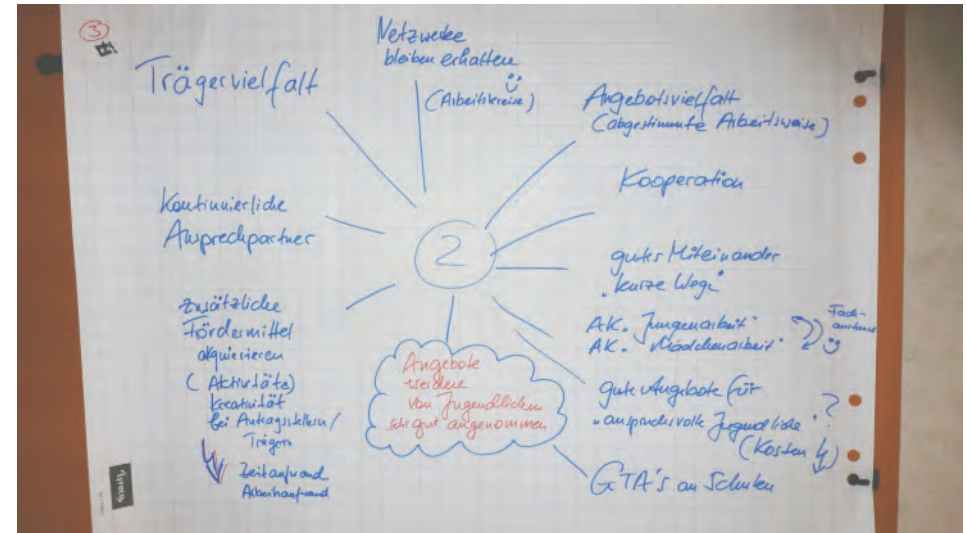 3
Trägervielfalt
Netzwerke
bleiben erhalten
(Arbeitskreise)
Angebotsvielfalt
(abgestimmte Arbeitsweise)
Kooperation
Kontinuierliche
Ansprechpartner
2
gutes Miteinander
"kurze Wege"
zusätzliche
Fördermittel
akquierieren
(Aktivität)
Kreativität
bei Antragsstellern/
Trägern
Zeitaufwand
Arbeitsaufwand
AK. Jungenarbeit
AK. Mädchenarbeit
Fach-
Angebote
werden
von Jugendlichen
sehr gut angenommen
gute Angebote für
"anspruchsvolle Jugendliche" ?
(Kosten)
GTA's an Schulen